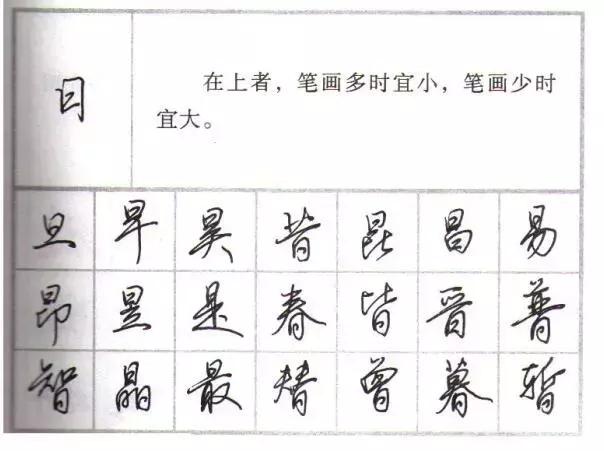 日
在上者，笔画多时宜小，笔画少时
宜大。
旦 早 昊 昔 昆 昌 易
昂 昱 是 春 皆 晋 普
智 晶 最 替 曾 暮 暂